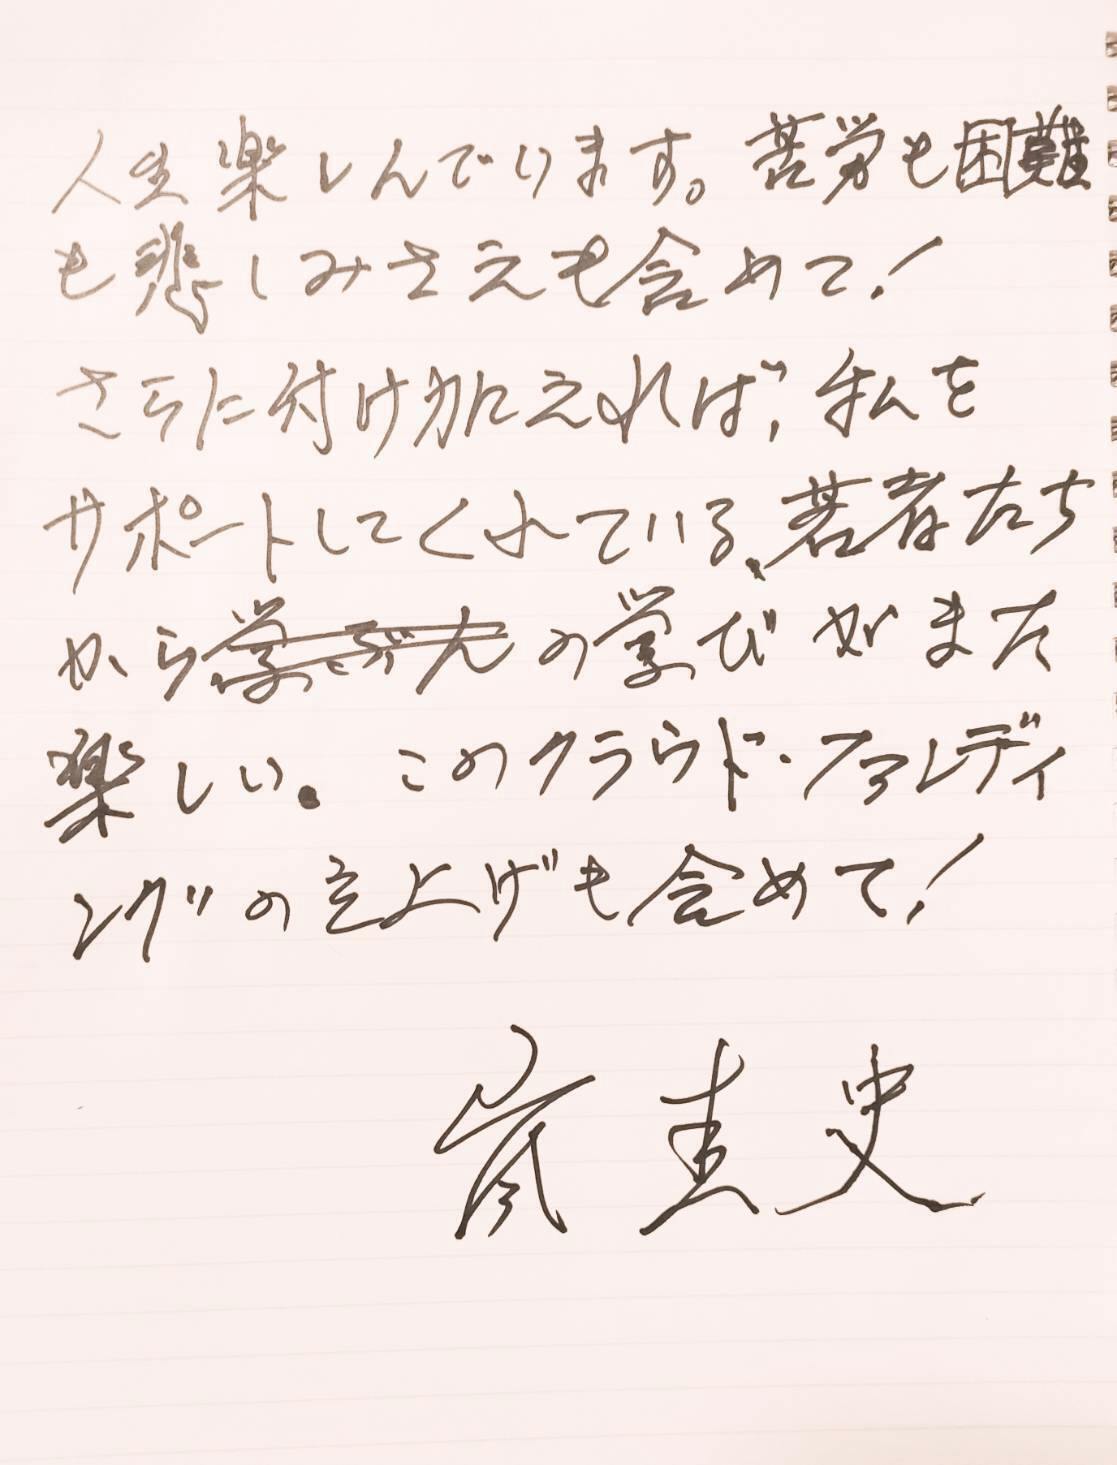 人生楽しんでります。苦労も困難
も悲しみさえも含めて!
さらに付け加えれば、私を
サポートしてくれている、若者たち
からの学びがまた
楽しい。このクラウド・ファンディ
ングの立上げも含めて!
嵐圭史